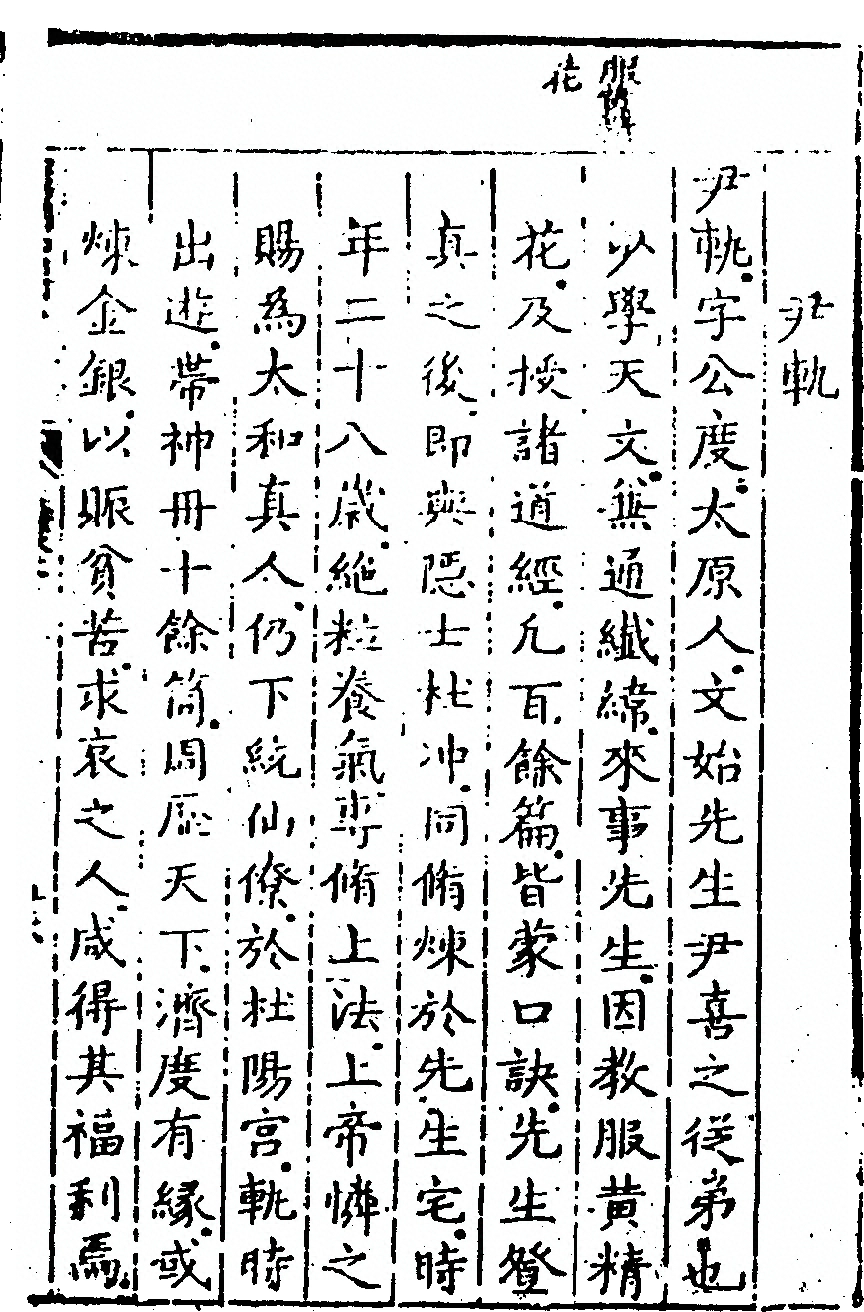 尹軌
尹軌字公度太原人文始先生尹喜之從弟也
少學天文兼通纖緯來事先生因教服黄精
花及授諸道經凢百餘篇皆蒙口訣先生登
真之後即與隱士杜冲同脩煉於先生宅時
年二十八歲絶粒養氣專脩上法上帝憐之
賜為太和真人仍下統仙僚於杜陽宮軌時
出遊帶神冊十餘筒周歷天下濟度有緣或
煉金銀以賑貧苦求哀之人咸得其福利焉
服黄精
花